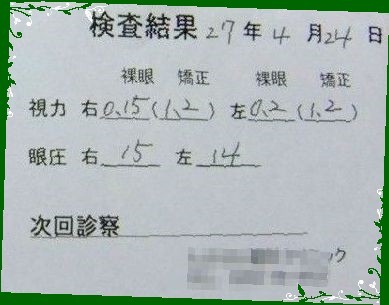 検査結果 27年4月24日
裸眼 矯正 裸眼 矯正
視力 右 0.15 (1.2) 左 0.2 (1.2)
眼圧 右 15 左 14
次回診察